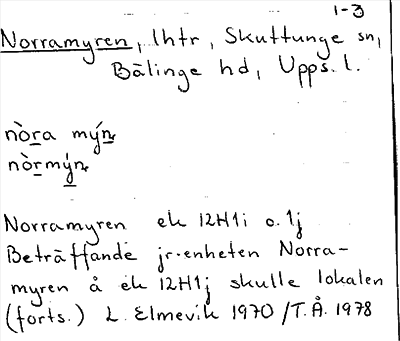 1-3
Norramyren, lhtr, Skuttunge sn,
Bälinge hd, Upps. l.
nò̀ra mýn
nòrmýn
Norramyren ek 12H1i o. 1j
Beträffande jr-enheten Norra-
myren å ek 12H1j skulle lokalen
(forts.) L. Elmevik 1970 /T.Å. 1978